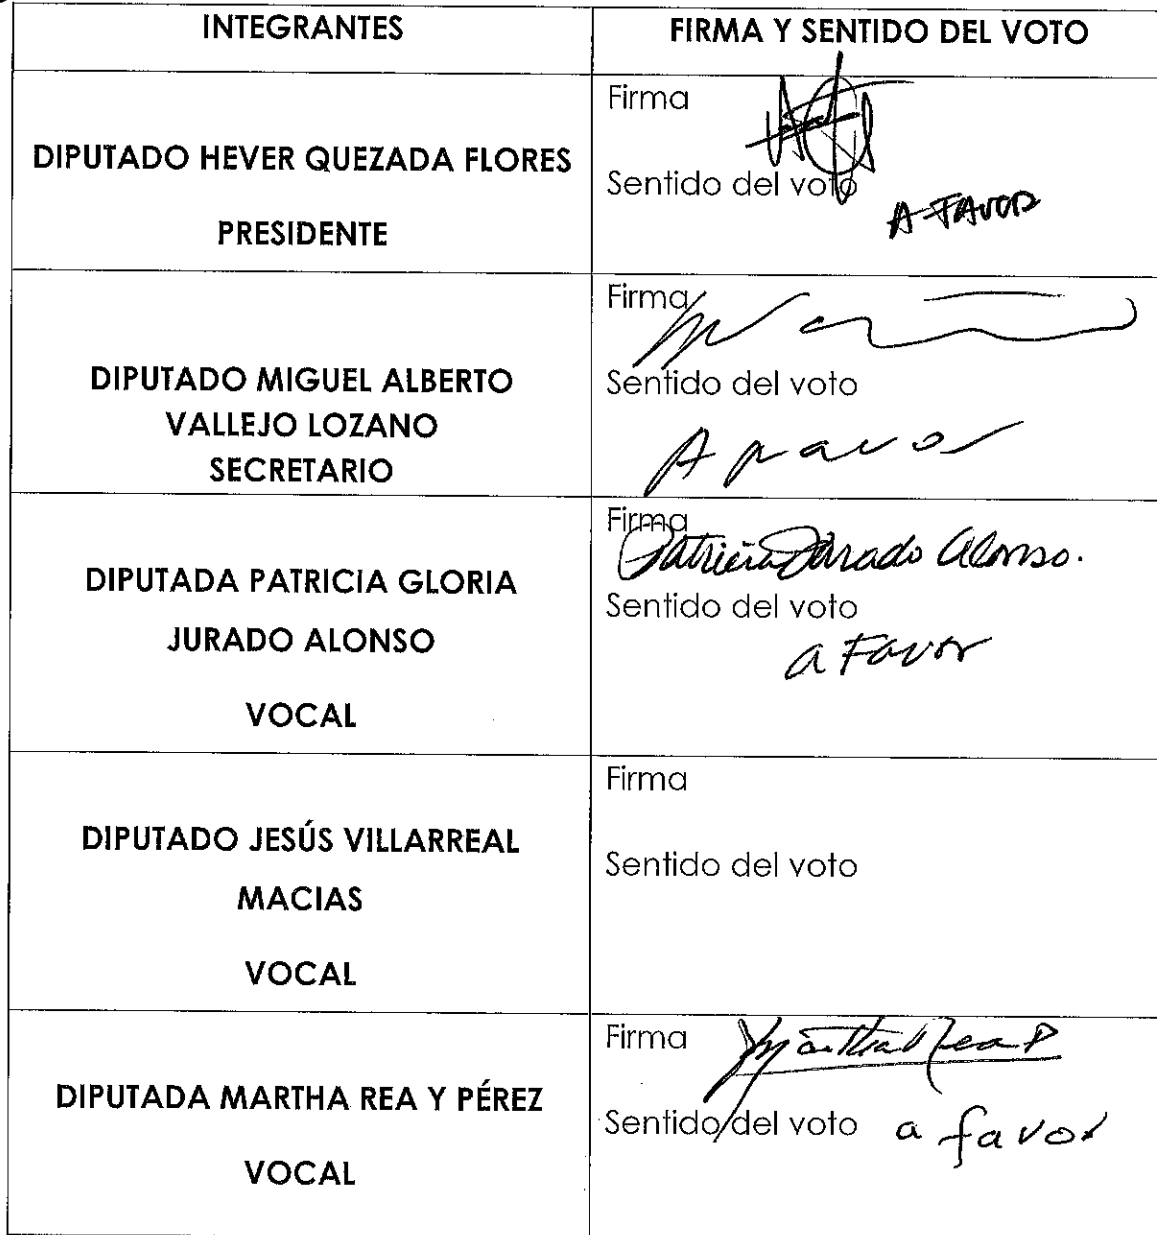 INTEGRANTES
FIRMA Y SENTIDO DEL VOTO
DIPUTADO HEVER QUEZADA FLORES
PRESIDENTE
Firma
Sentido del voto
A FAVOR
DIPUTADO MIGUEL ALBERTO
VALLEJO LOZANO
SECRETARIO
Firma
Sentido del voto
A favor
DIPUTADA PATRICIA GLORIA
JURADO ALONSO
VOCAL
Firma
Patricia Jurado Alonso.
Sentido del voto
a Favor
DIPUTADO JESÚS VILLARREAL
MACIAS
VOCAL
Firma
Sentido del voto
DIPUTADA MARTHA REA Y PÉREZ
VOCAL
Firma
Martha Rea P
Sentido del voto
a favor